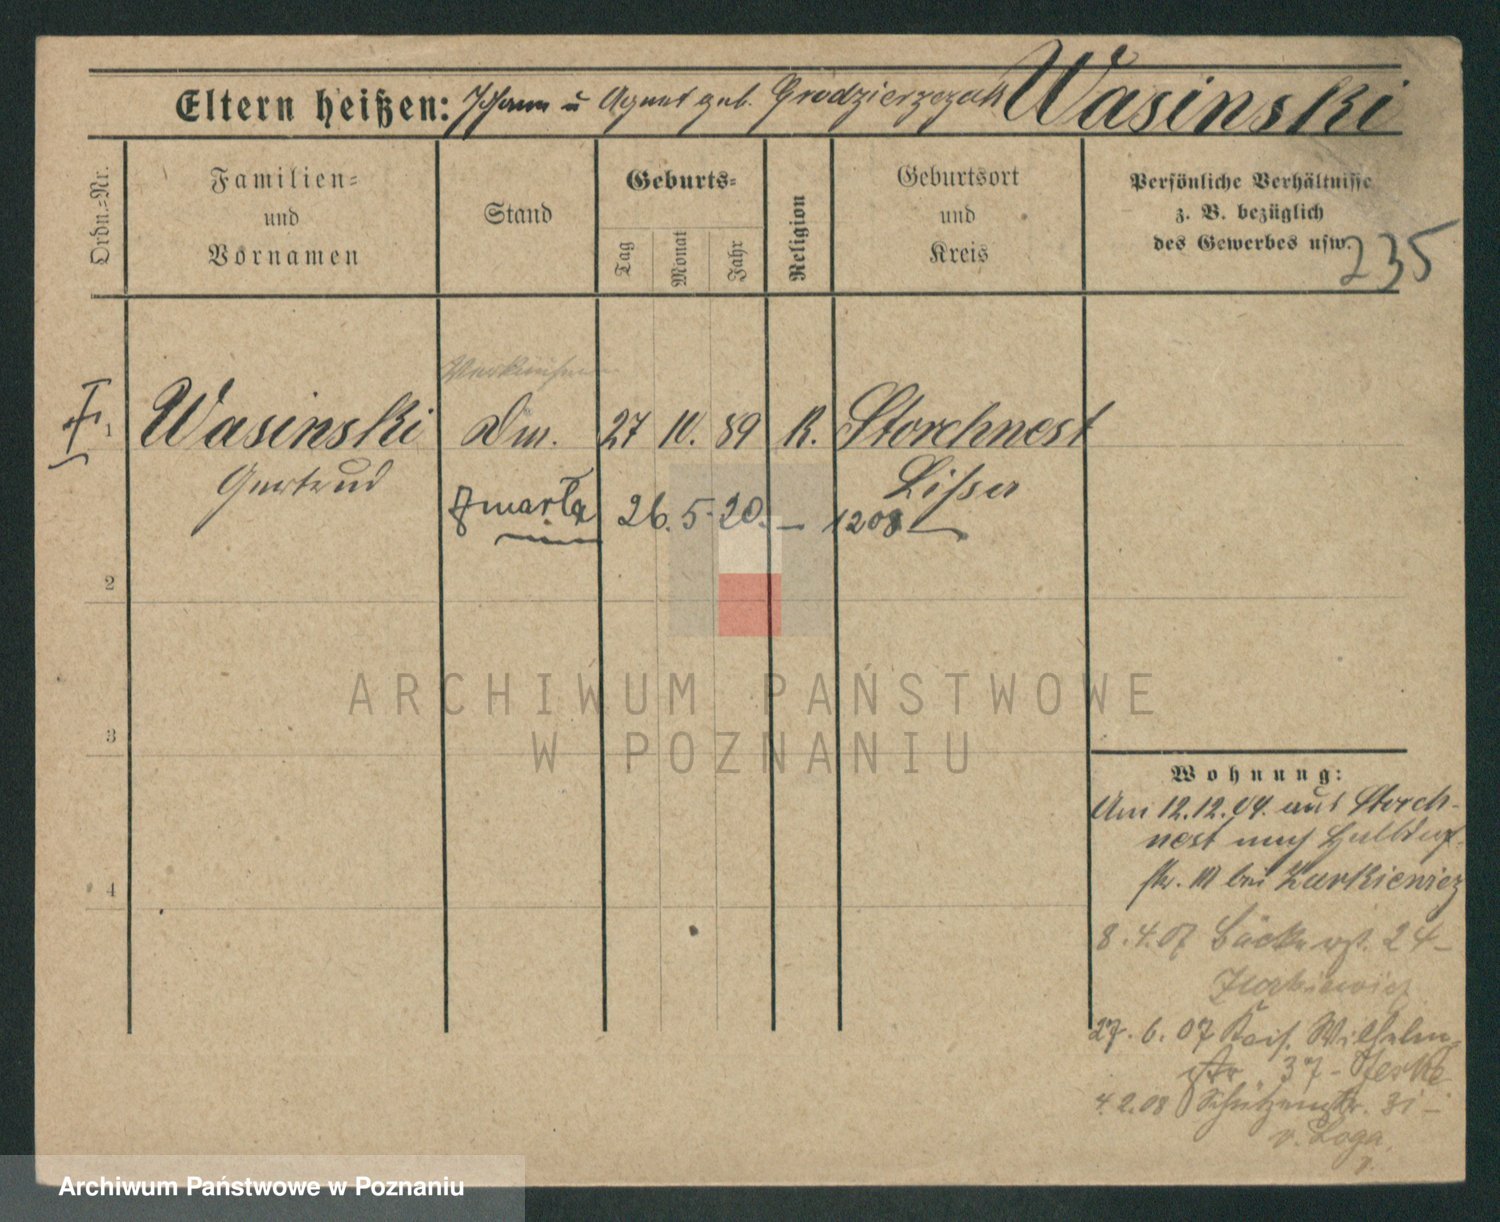 Eltern heißen: Johann u Agnes geb. Grodzierzczak Wasinski
Ordn.-Nr.
Familien-
und
Vornamen
Stand
Geburts-
Tag
Monat
Jahr
Religion
Geburtsort
und
Kreis
Persönliche Verhältnisse
z. B. bezüglich
des Gewerbes usw.
235
1 Wasinski 27 10. 89 K. Storchnest
Gertrud Lissa
Zmarła 26. 5. 20. – 1208
2
3
4
ARCHIWUM PAŃSTWOWE
W POZNANIU
Wohnung:
Am 12.12.04. aus Storch-
nest nach
str. 10 bei Zurkiewicz
8.4.07 24 –
Zurkiewicz
27. 6. 07 Kais. Wilhelm
str 37 -
4.2.08 Schützenstr. 31 –
v. Loga
Archiwum Państwowe w Poznaniu